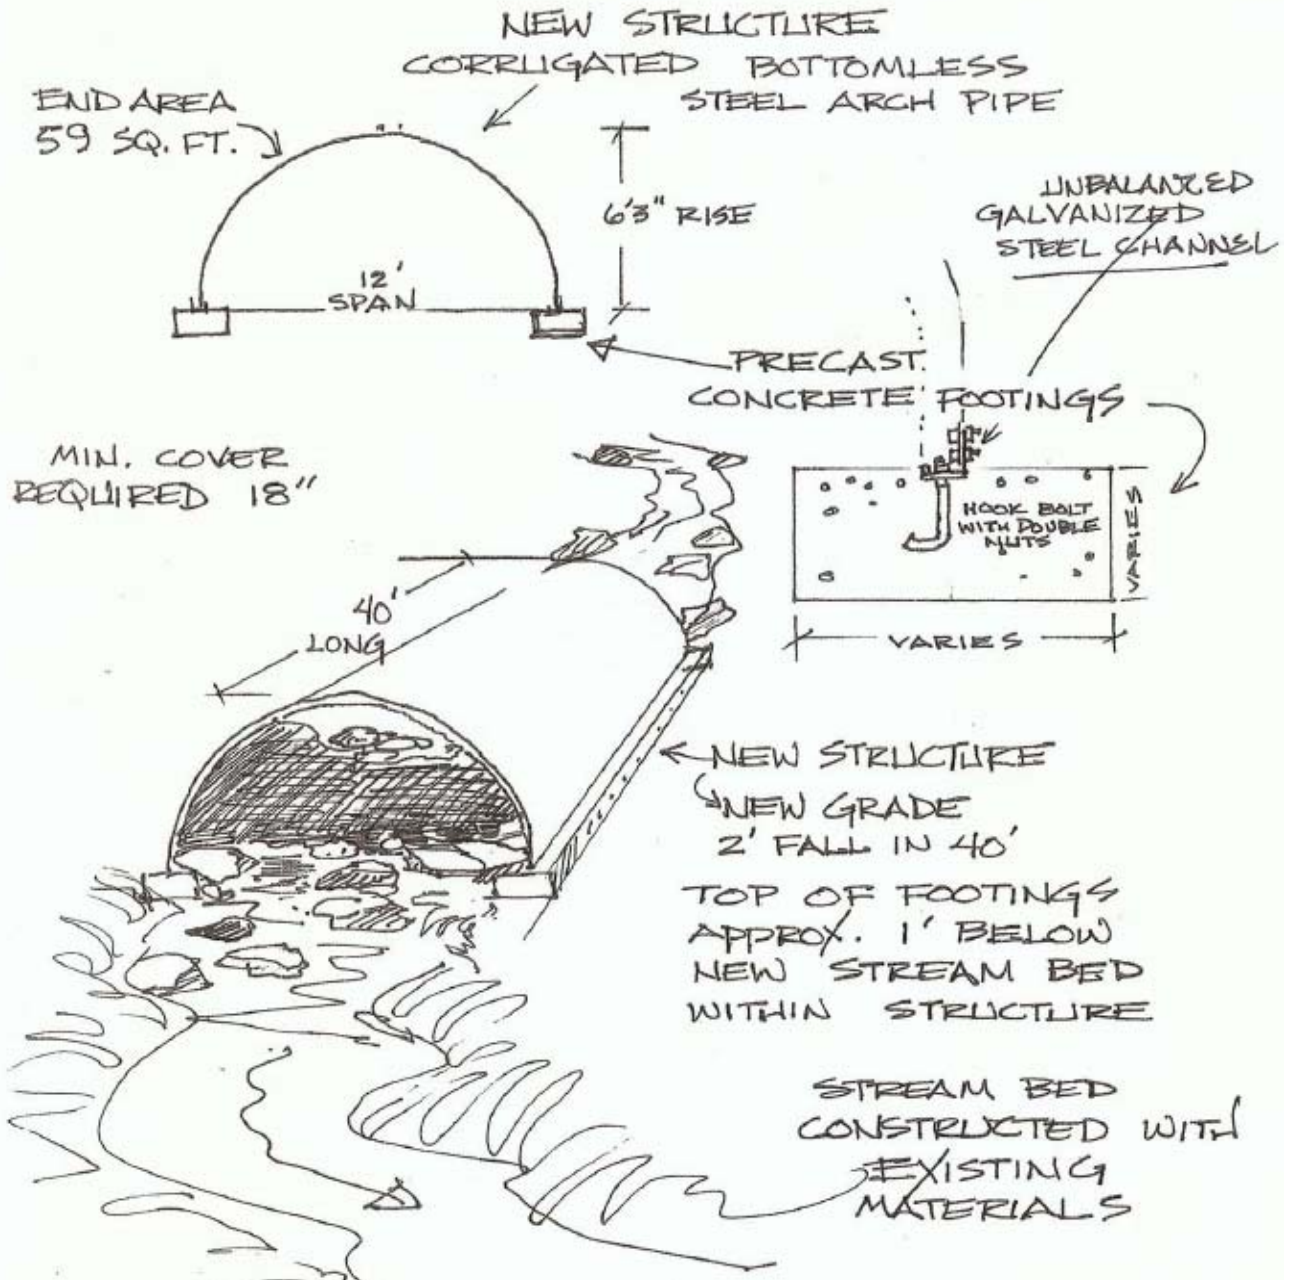 NEW STRUCTURE
CORRUGATED BOTTOMLESS
STEEL ARCH PIPE
END AREA
59 SQ. FT.
6'3" RISE
12'
SPAN
UNBALANCED
GALVANIZED
STEEL CHANNEL
PRECAST
CONCRETE FOOTINGS
MIN. COVER
REQUIRED 18"
HOOK BOLT
WITH DOUBLE
NUTS
VARIES
VARIES
40'
LONG
NEW STRUCTURE
NEW GRADE
2' FALL IN 40'
TOP OF FOOTINGS
APPROX. 1' BELOW
NEW STREAM BED
WITHIN STRUCTURE
STREAM BED
CONSTRUCTED WITH
EXISTING
MATERIALS